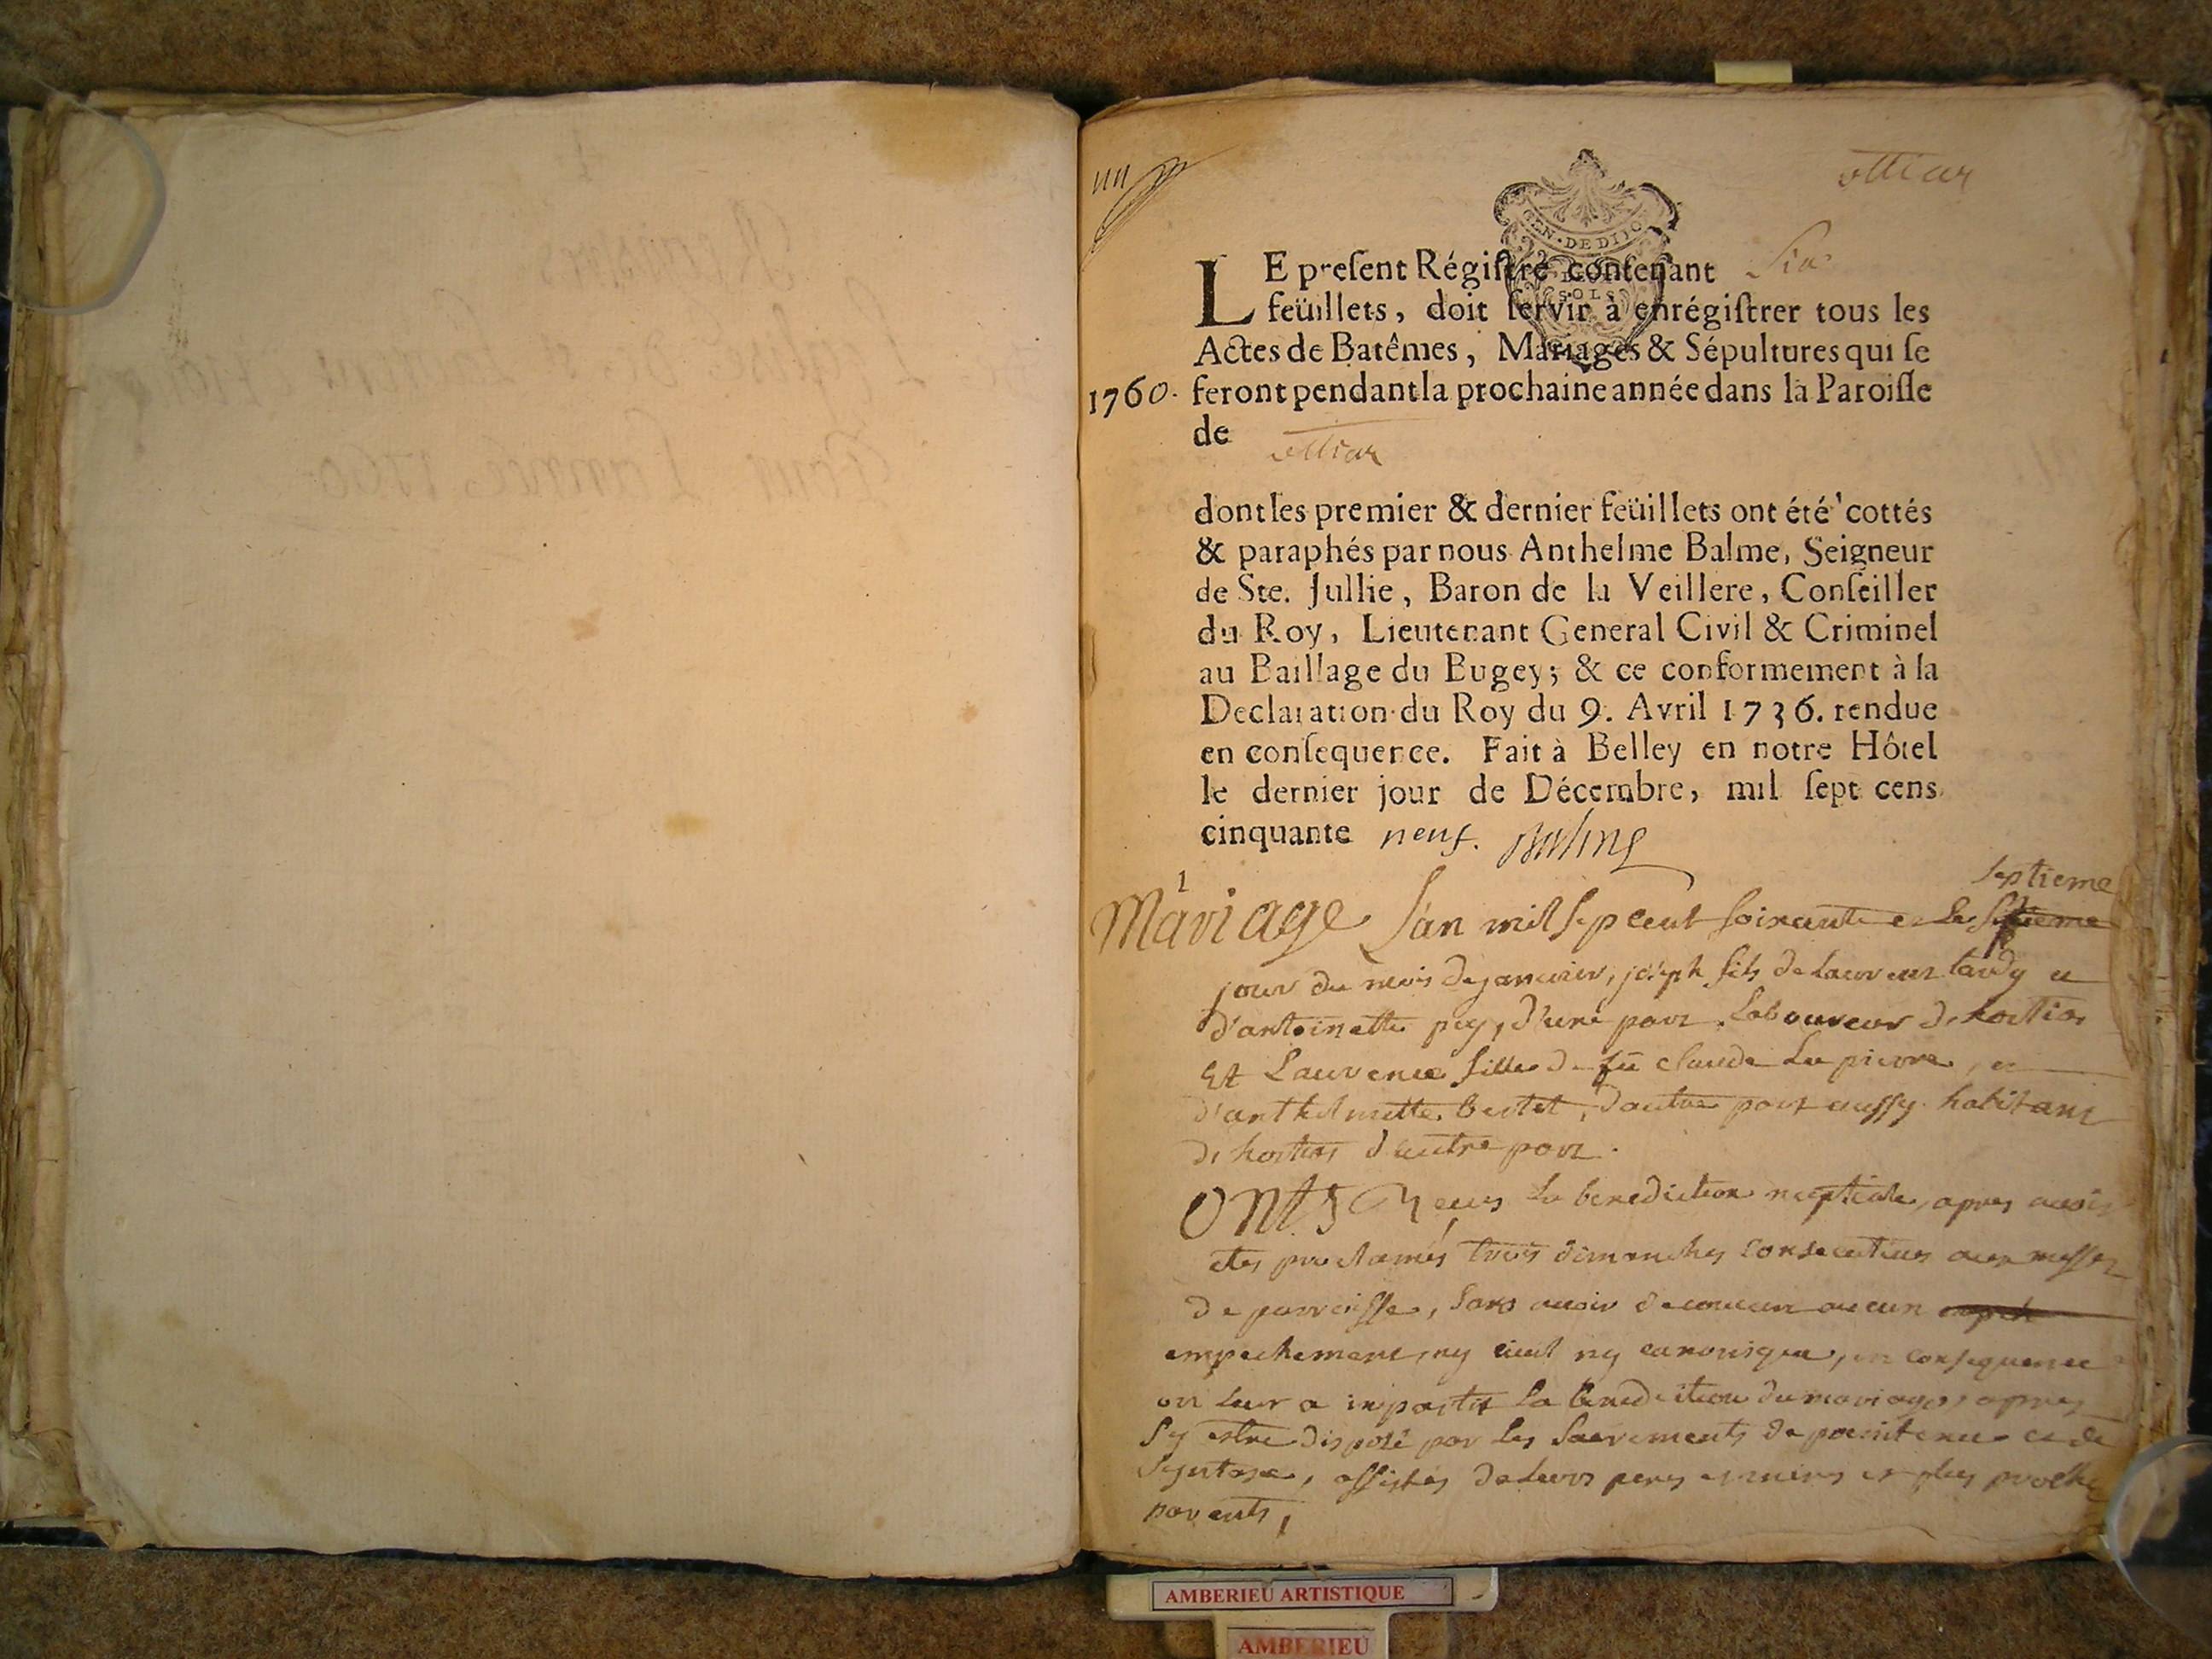 GEN. DE DIJO
SOLS
LE present Régistre contenant Six
feüillets, doit servir à enrégistrer tous les
Actes de Batêmes, Mariages & Sépultures qui se
1760. feront pendant la prochaine année dans la Paroisse
de
dont les premier & dernier feüillets ont été cottés
& paraphés par nous Anthelme Balme, Seigneur
de Ste. Jullie, Baron de la Veillere, Conseiller
du Roy, Lieutenant General Civil & Criminel
au Baillage du Bugey; & ce conformement à la
Declaration du Roy du 9. Avril 1736. rendue
en consequence. Fait à Belley en notre Hôtel
le dernier jour de Décembre, mil sept cens
cinquante neuf. Balme
1
septieme
Mariage L'an mil sep cent soixante et le
jour du mois de janvier, joseph fils de Laurent tardy et
d'antoinette pey, d'une part Laboureur de
Et Laurence fille de fû claude La pierre, et
d'anthelmette bertet, d'autre part aussy habitant
de d'autre part.
ONts Reçus la benediction nuptiale, apres avoir
etes proclamés trois dimanches consecutives aux messes
de parroisse, sans avoir decouvert aucun
empechement, ny civil ny canonique, en consequence
on leur a impartit la benediction du mariage, apres
s'y estre disposé par les sacrements de penitence et de
, assistés de leurs peres et meres et plus proches
parents,
AMBERIEU ARTISTIQUE
AMBERIEU